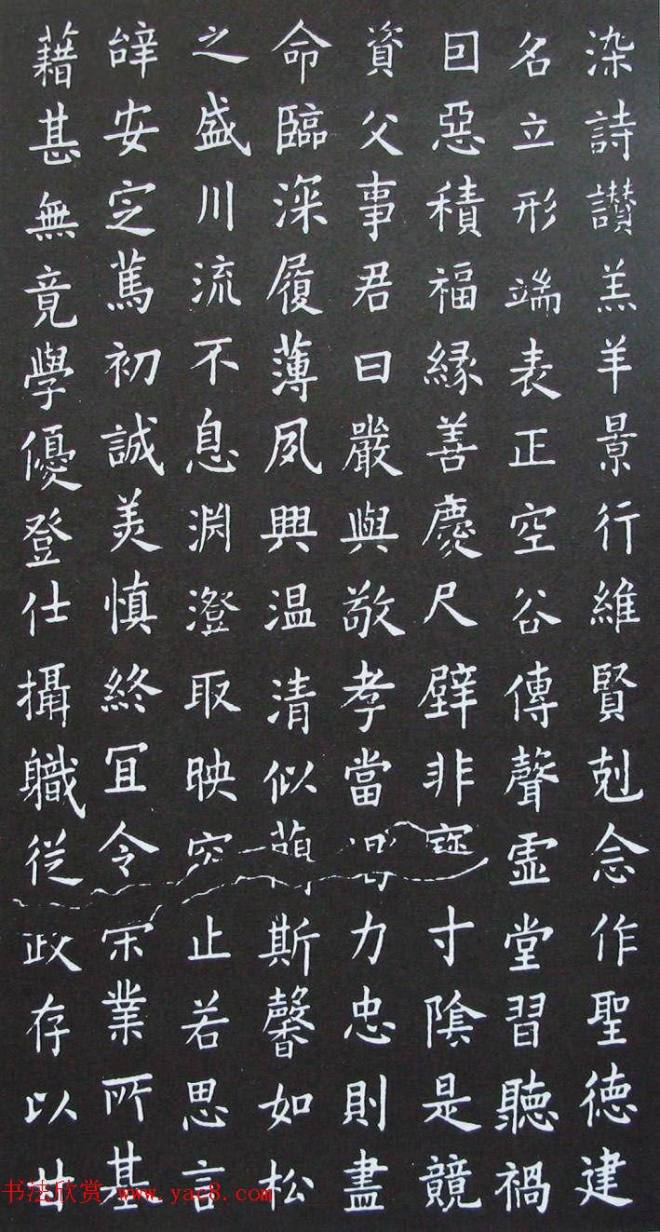 染詩讃羔羊景行維賢剋念作聖德建
名立形端表正空谷傳聲虛堂習聽禍
囙惡積福緣善慶尺璧非寶寸陰是競
資父事君曰嚴與敬孝當竭力忠則盡
命臨深履薄夙興温清似蘭斯馨如松
之盛川流不息淵澄取映容止若思言
辭安定篤初誠美慎終冝令榮業所基
藉甚無竟學優登仕攝職從政存以甘
书法欣赏 www.yac8.com